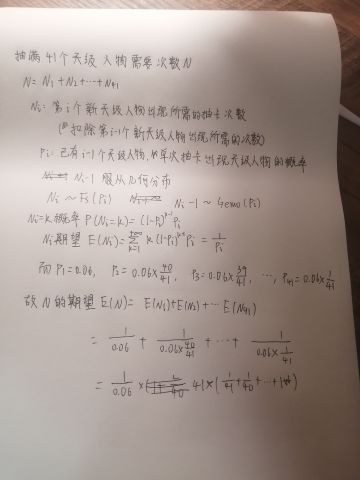 抽满41个天级人物需要次数N
N=N₁+N₂+…+N₄₁
Nᵢ: 第i个新天级人物出现所需的抽卡次数
(扣除第i-1个新天级人物出现所需的次数)
Pᵢ: 已有i-1个天级人物,单次抽卡出现天级人物的概率
Nᵢ-1 服从几何分布
Nᵢ ~ Fs(Pᵢ) Nᵢ-1 ~ Geno(Pᵢ)
Nᵢ=k概率 P(Nᵢ=k)=(1-Pᵢ)ᵏ⁻¹Pᵢ
Nᵢ期望 E(Nᵢ)=∑_{k=1}^{+∞} k(1-Pᵢ)ᵏ⁻¹Pᵢ = 1/Pᵢ
而P₁=0.06, P₂=0.06×40/41, P₃=0.06×39/41, …, P₄₁=0.06×1/41
故N的期望E(N)= E(N₁)+E(N₂)+…E(N₄₁)
= 1/0.06 + 1/(0.06×40/41) + … + 1/(0.06×1/41)
= 1/0.06 × 41×(1/41+1/40+…+1)